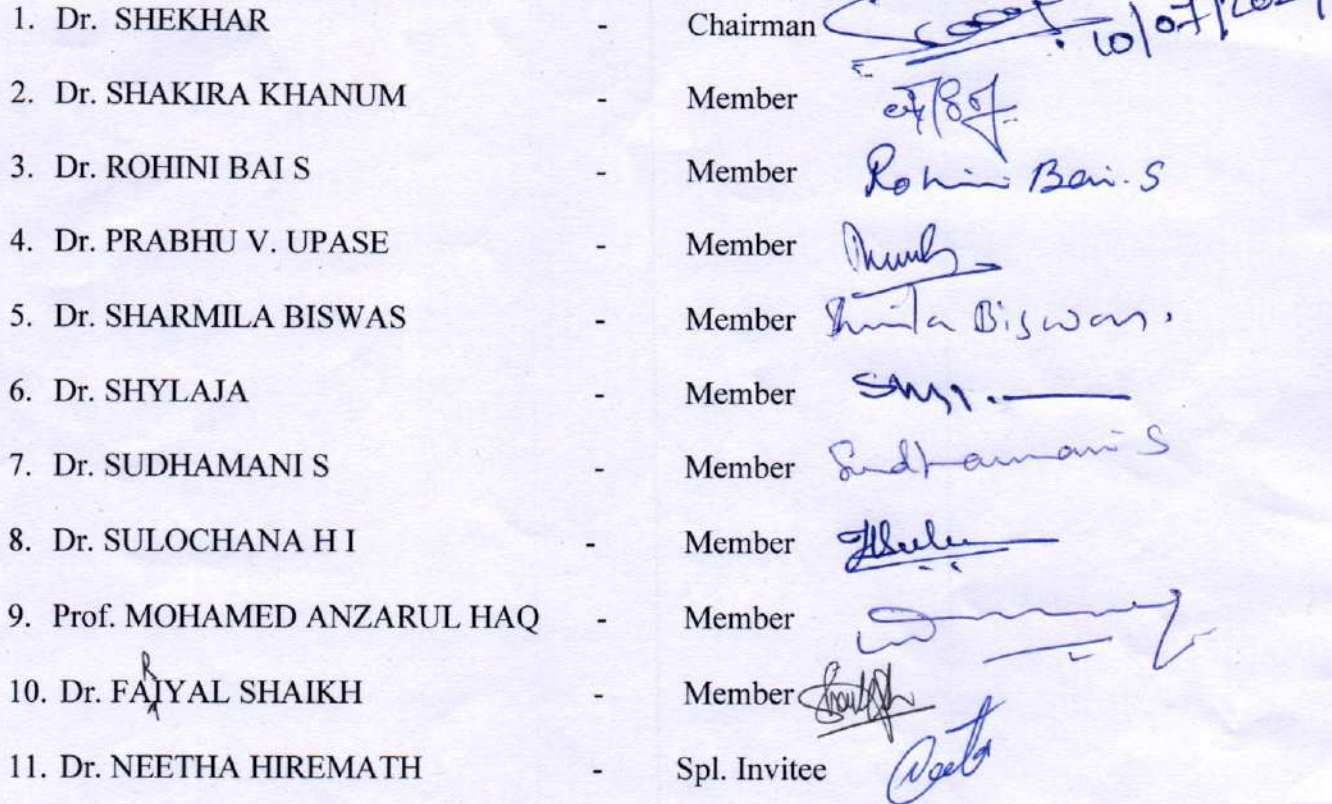 1. Dr. SHEKHAR - Chairman
2. Dr. SHAKIRA KHANUM - Member
3. Dr. ROHINI BAI S - Member Rohini Bai. S
4. Dr. PRABHU V. UPASE - Member
5. Dr. SHARMILA BISWAS - Member Biswas.
6. Dr. SHYLAJA - Member
7. Dr. SUDHAMANI S - Member Sudhamani S
8. Dr. SULOCHANA H I - Member
9. Prof. MOHAMED ANZARUL HAQ - Member
R
10. Dr. FAIYAL SHAIKH - Member
11. Dr. NEETHA HIREMATH - Spl. Invitee